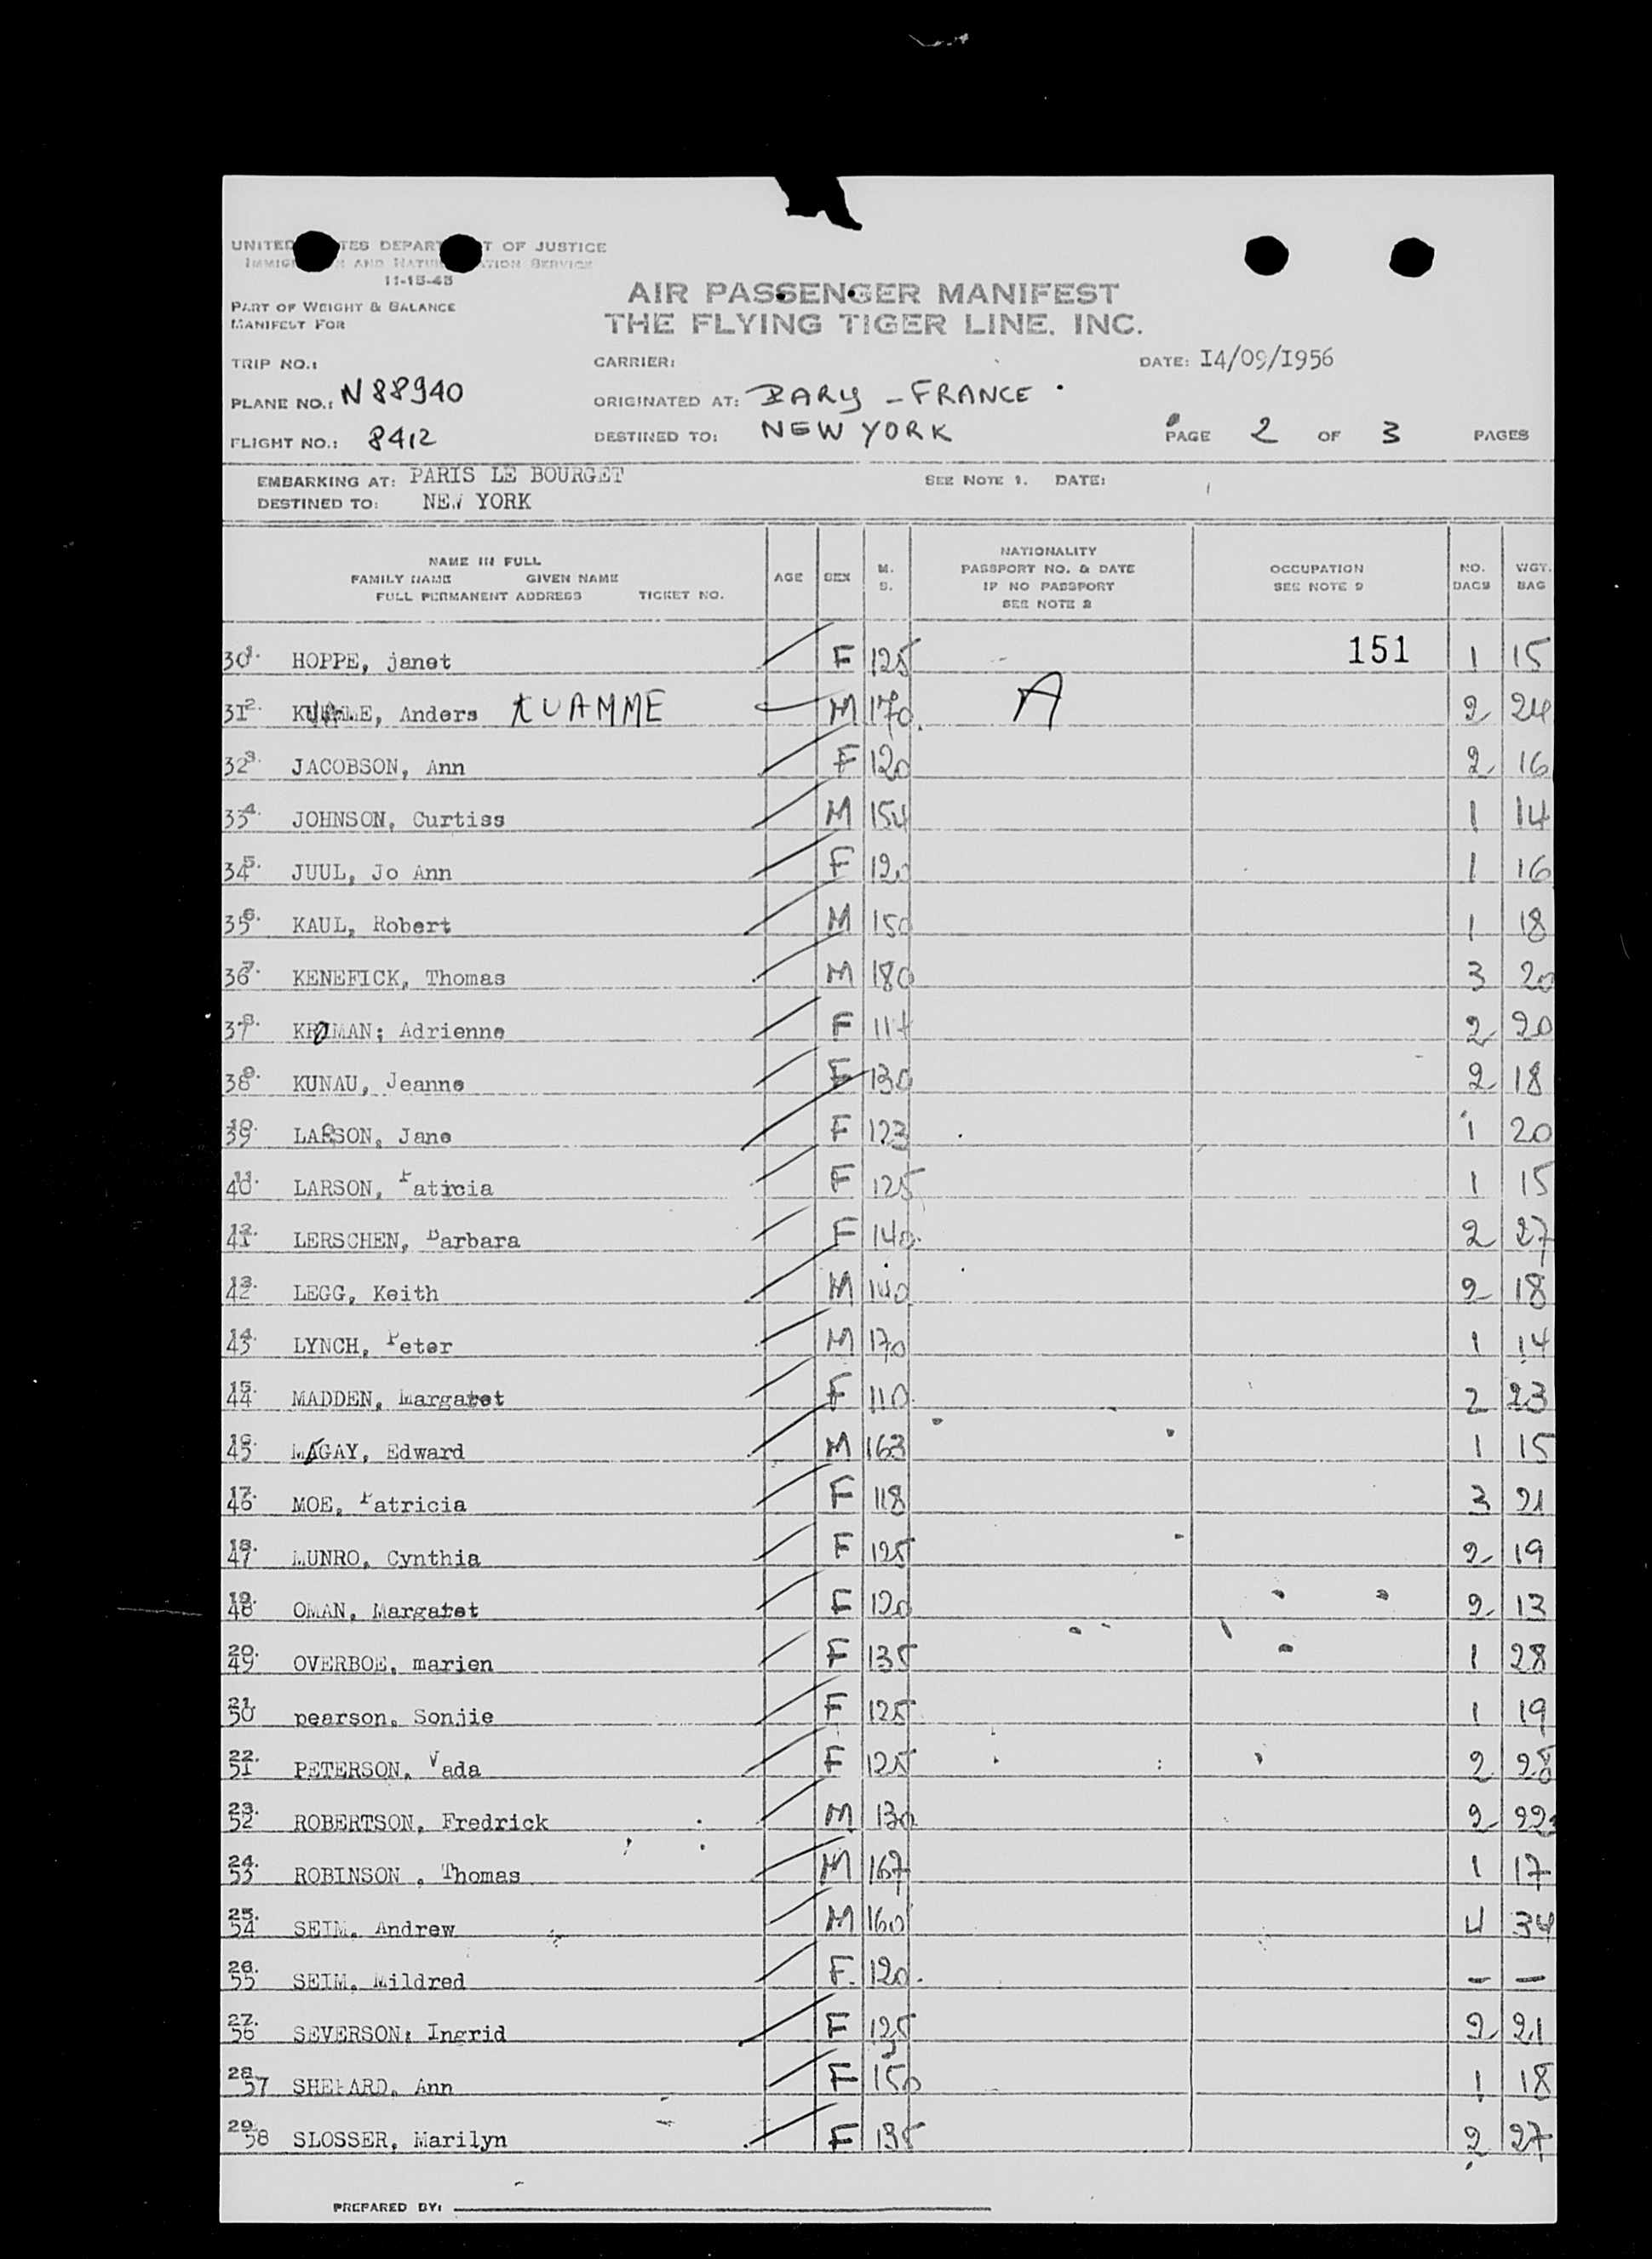 UNITED TES DEPAR T OF JUSTICE
IMMIG N AND NATU ATION SERVICE
11-15-45
PART OF WEIGHT & BALANCE
MANIFEST FOR
AIR PASSENGER MANIFEST
THE FLYING TIGER LINE, INC.
TRIP NO.: CARRIER: DATE: I4/09/I956
PLANE NO.: N 88940 ORIGINATED AT: PARIS - FRANCE
FLIGHT NO.: 8412 DESTINED TO: NEW YORK PAGE 2 OF 3 PAGES
EMBARKING AT: PARIS LE BOURGET SEE NOTE 1. DATE:
DESTINED TO: NEW YORK
NAME IN FULL
FAMILY NAME GIVEN NAME
FULL PERMANENT ADDRESS TICKET NO.
AGE SEX M. S.
NATIONALITY
PASSPORT NO. & DATE
IF NO PASSPORT
SEE NOTE 2
OCCUPATION
SEE NOTE 2
NO. BAGS WGT. BAG
30 1. HOPPE, janet F 125 151 1 15
31 2. Anders KUAMME M 170 A 2 24
32 3. JACOBSON, Ann F 120 2 16
33 4. JOHNSON, Curtiss M 154 1 14
34 5. JUUL, Jo Ann F 120 1 16
35 6. KAUL, Robert M 150 1 18
36 7. KENEFICK, Thomas M 180 3 20
37 8. KROMAN; Adrienne F 2 20
38 9. KUNAU, Jeanne F 130 2 18
39 10. LARSON, Jane F 123 1 20
40 11. LARSON, Paticia F 125 1 15
41 12. LERSCHEN, Barbara F 140 2 27
42 13. LEGG, Keith M 140 2 18
43 14. LYNCH, Peter M 170 1 14
44 15. MADDEN, Margaret F 110 2 23
45 16. MAGAY, Edward M 163 1 15
46 17. MOE, Patricia F 118 3 21
47 18. MUNRO, Cynthia F 125 2 19
48 19. OMAN, Margaret F 120 2 13
49 20. OVERBOE, marien F 135 1 28
50 21. pearson, Sonjie F 125 1 19
51 22. PETERSON, Vada F 125 2 28
52 23. ROBERTSON, Fredrick M 130 2 22
53 24. ROBINSON , Thomas M 167 1 17
54 25. SEIM, Andrew M 160 4 34
55 26. SEIM, Mildred F. 120 - -
56 27. SEVERSON; Ingrid F 125 2 21
57 28. SHEPARD, Ann F 150 1 18
58 29. SLOSSER, Marilyn F 135 2 27
PREPARED BY: